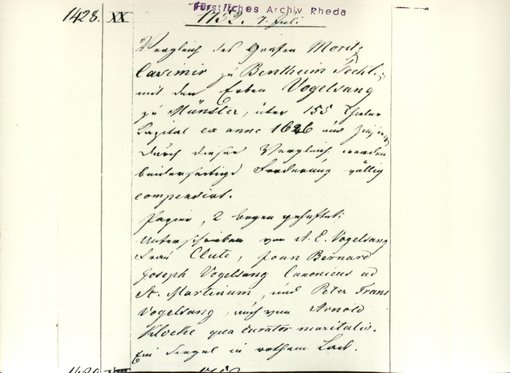 Fürstliches Archiv Rheda
1428. XX 1752. 7. Juli
Vergleich des Grafen Moritz
Casimir zu Bentheim Teckl.
mit den Erben Vogelsang
zu Münster, über 155 Thaler
Capital ex anno 1626 und
durch diesen Vergleich werden
beiderseitige Forderung völlig
compensirt.
Papier, 2 bogen geheftet:
Unterschrieben von A. E. Vogelsang
Frau Clute, Joan Bernard
Joseph Vogelsang Canonicus ad
St. Martinum, und Peter Franz
Vogelsang, auch von Arnold
Klocke qua curator maritalis.
Ein Siegel in rothem Lack.